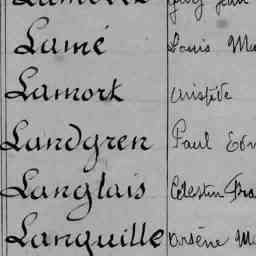 Lamé Louis
Lamort Aristide
Landgren Paul
Langlais Célestin
Languille Arsène